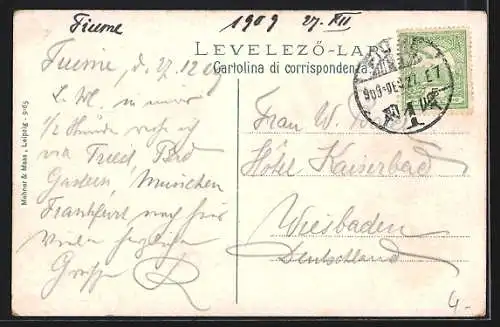 Fiume 1909 27. XII
LEVELEZŐ-LAP
Cartolina di corrispondenza
Fiume, d. 27.12.09
909 DEC 27
L. W. in
1/2 Stunde
via Triest, Bad
Gastein, München
Frankfurt nach
Viele herzliche
Grüsse R
Frau W.
Hôtel Kaiserbad
Wiesbaden
Deutschland
4.-
Mehner & Maas, Leipzig.